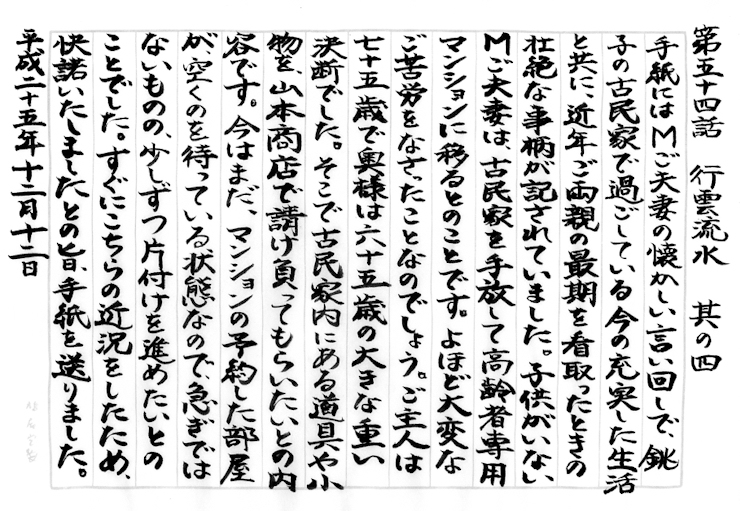 第五十四話　行雲流水　其の四
手紙にはMご夫妻の懐かしい言い回しで、銚
子の古民家で過ごしている今の充実した生活
と共に、近年ご両親の最期を看取ったときの
壮絶な事柄が記されていました。子供がいない
Mご夫妻は、古民家を手放して高齢者専用
マンションに移るとのことです。よほど大変な
ご苦労をなさったことなのでしょう。ご主人は
七十五歳で奥様は六十五歳の大きな重い
決断でした。そこで古民家内にある道具や小
物を、山本商店で請け負ってもらいたいとの内
容です。今はまだ、マンションの予約した部屋
が、空くのを待っている状態なので、急ぎでは
ないものの、少しずつ片付けを進めたいとの
ことでした。すぐにこちらの近況をしたため、
快諾いたしましたとの旨、手紙を送りました。
平成二十五年十二月十二日